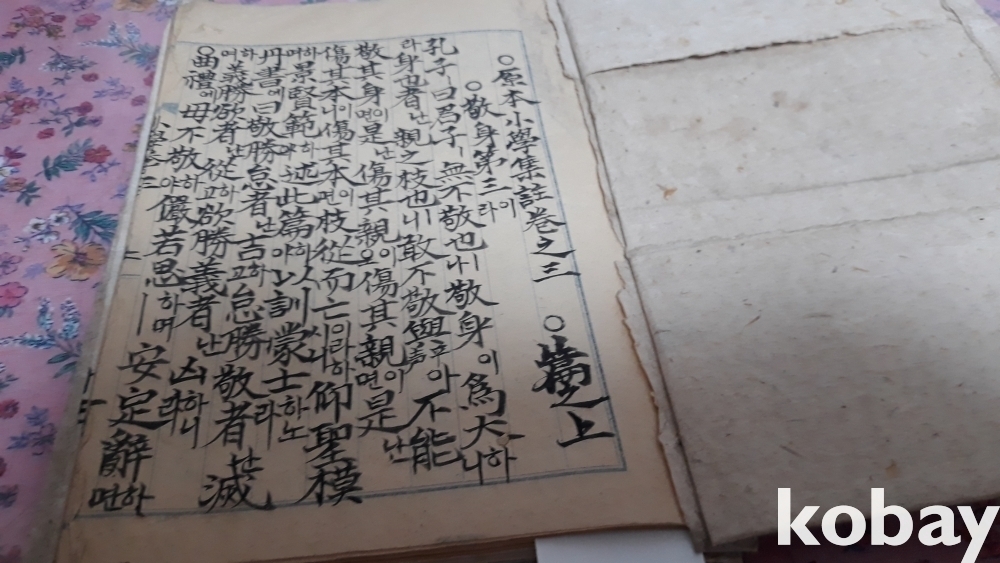 ○原本小學集註卷之三 ○之上
○敬身第三이라
孔子ㅣ曰君子ㅣ無不敬也나ㅣ敬身이爲大하니
라身也者난親之枝也니敢不敬與아不能
敬其身이면是난傷其親이오傷其親이면是난
傷其本이니傷其本이면枝從而亡이라하시니仰聖模
하며景賢範하야述此篇하야以訓蒙士하노라
丹書에曰敬勝怠者난吉하고怠勝敬者난滅
하며義勝欲者난從하고欲勝義者난凶하니라
○曲禮에毋不敬하야儼若思하며安定辭하면
kobay